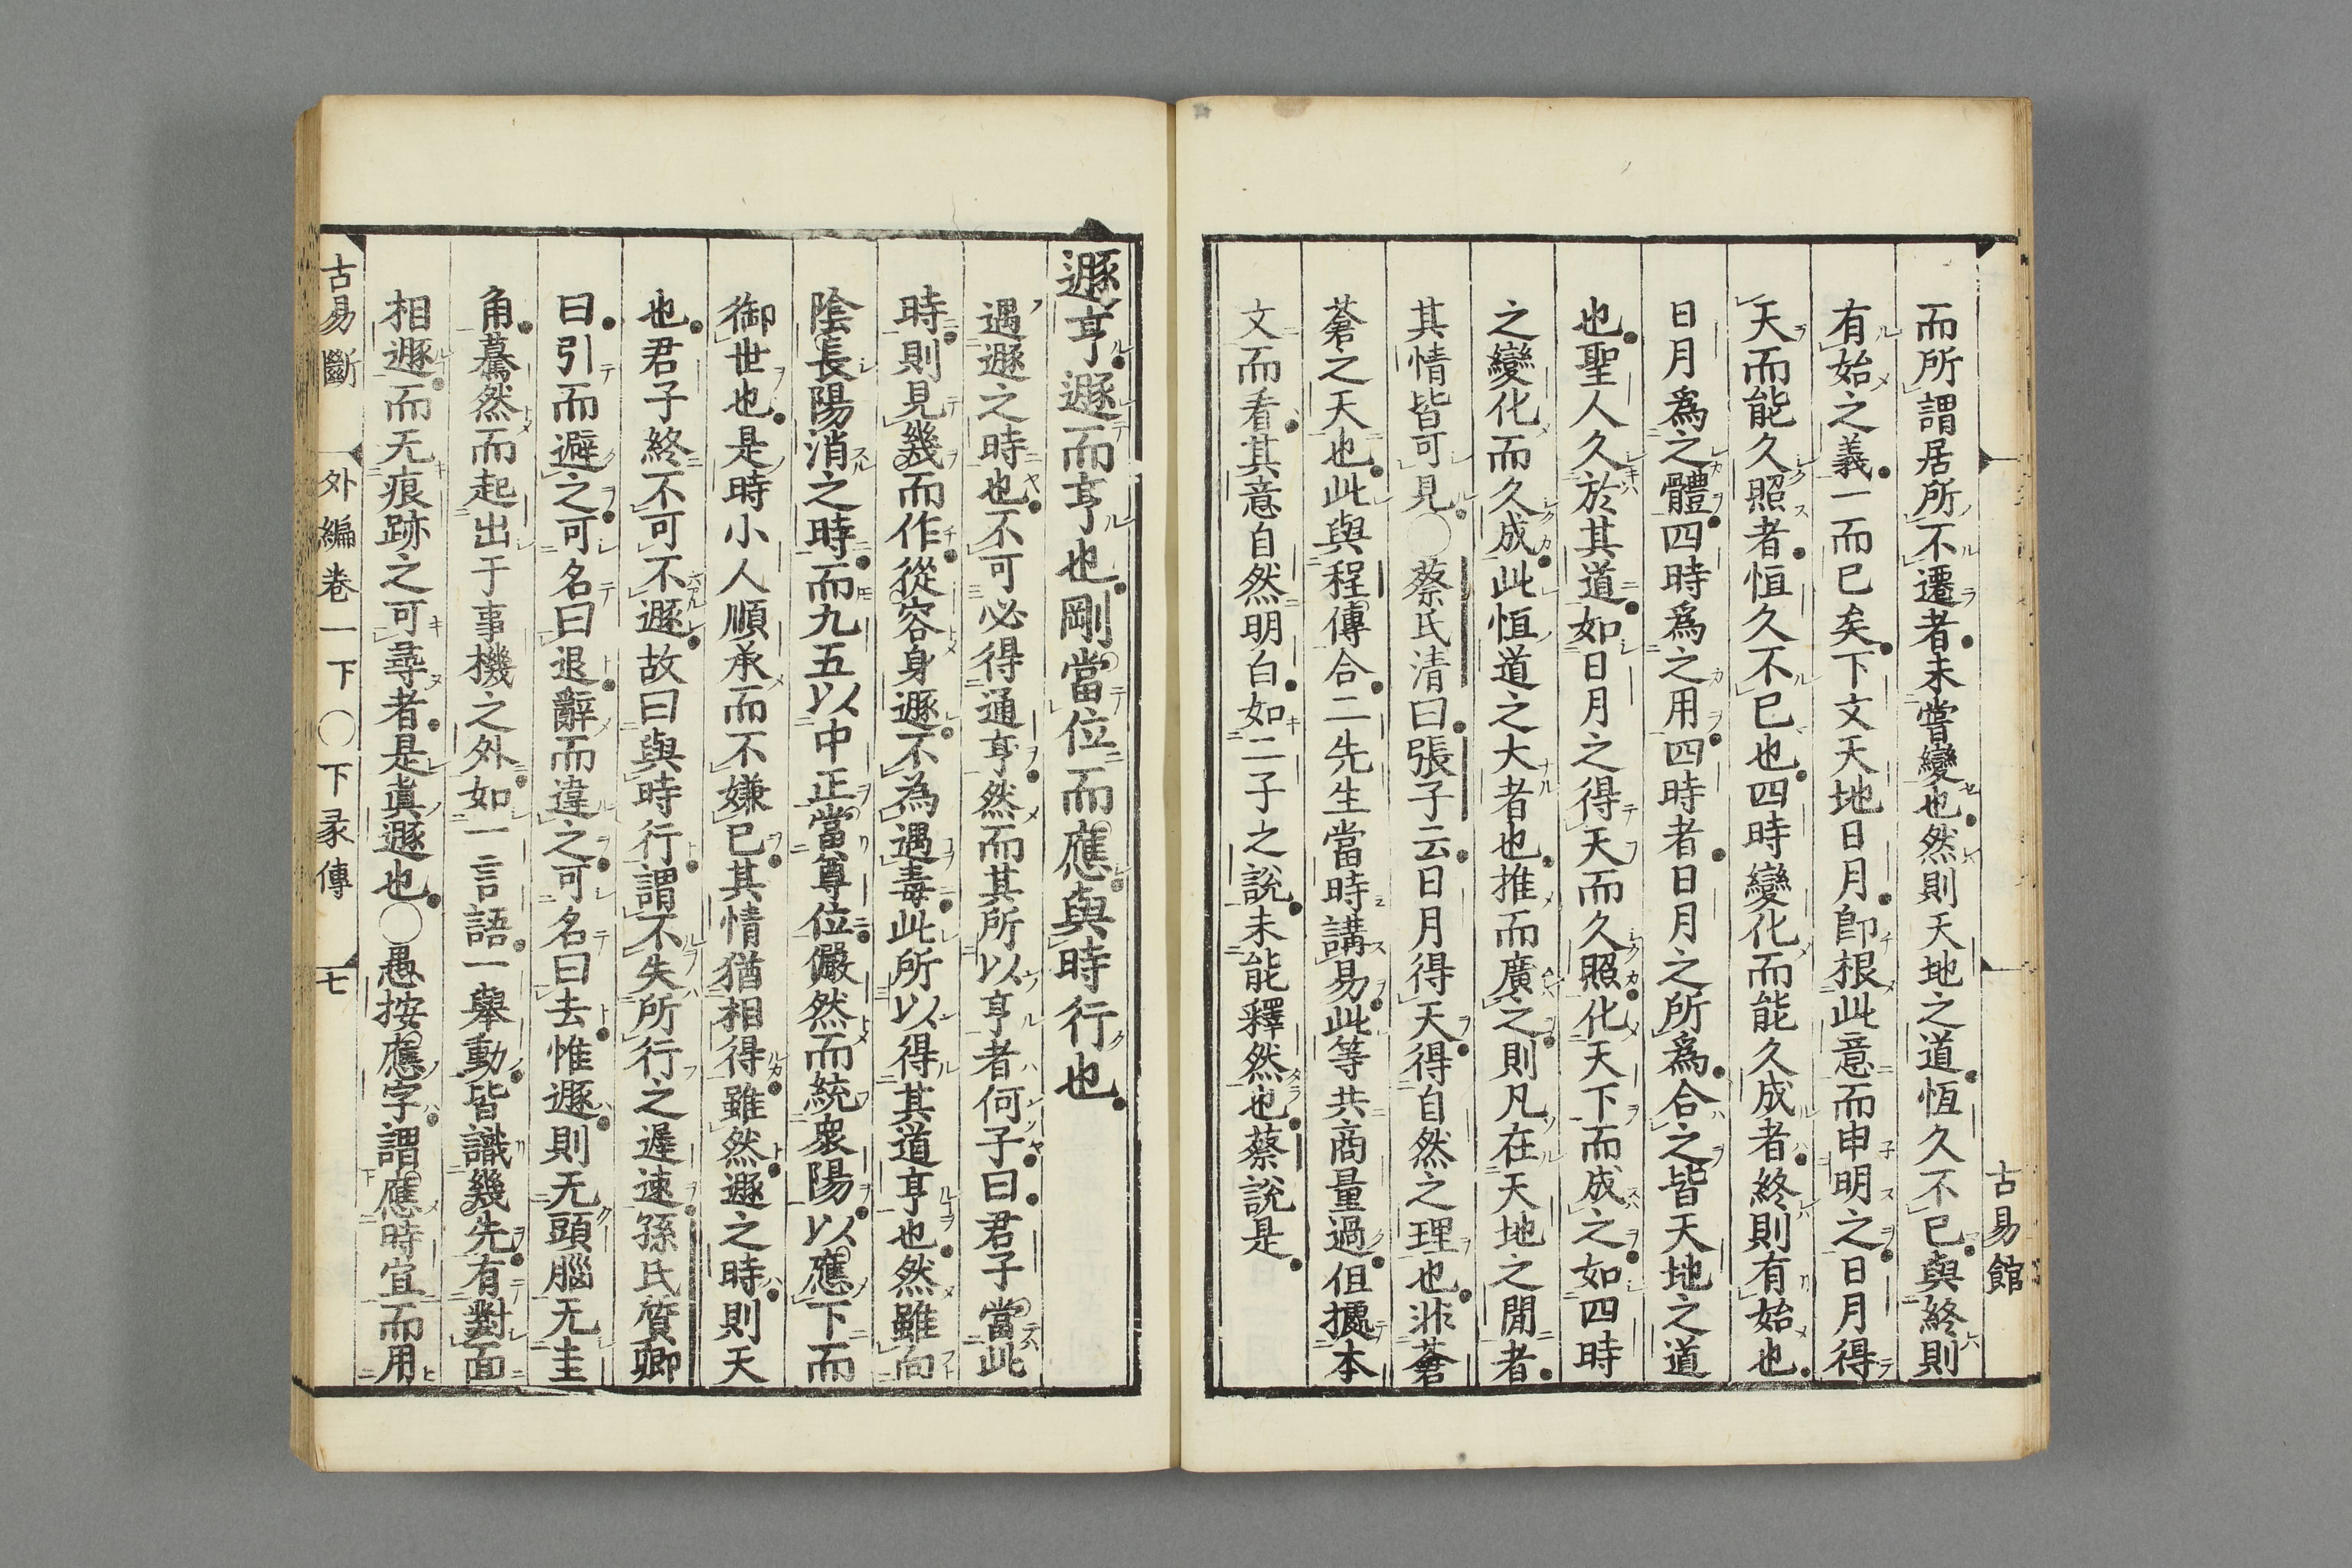 古易館
而所謂居所不遷者未嘗變也然則天地之道恆久不已與終則
有始之義一而已矣下文天地日月卽根此意而申明之日月得
天而能久照者恒久不已也四時變化而能久成者終則有始也
日月爲之體四時爲之用四時者日月之所爲合之皆天地之道
也聖人久於其道如日月之得天而久照化天下而成之如四時
之變化而久成此恒道之大者也推而廣之則凡在天地之閒者
其情皆可見○蔡氏清曰張子云日月得天得自然之理也非蒼
蒼之天也此與程傳合二先生當時講易此等共商量過但據本
文而看其意自然明白如二子之說未能釋然也蔡說是
遯亨遯而亨也剛當位而應與時行也
遇遯之時也不可必得通亨然而其所以亨者何子曰君子當此
時則見幾而作從容身遯不為遇毒此所以得其道亨也然雖向
陰長陽消之時而九五以中正當尊位儼然而統衆陽以應下而
御世也是時小人順承而不嫌已其情猶相得雖然遯之時則天
也君子終不可不遯故曰與時行謂不失所行之遲速孫氏質卿
曰引而避之可名曰退辭而違之可名曰去惟遯則无頭腦无圭
角驀然而起出于事機之外如一言語一舉動皆識幾先有對面
相遯而无痕跡之可尋者是眞遯也○愚按應字謂應時宜而用
古易斷 外編卷一下 ○下彖傳 七